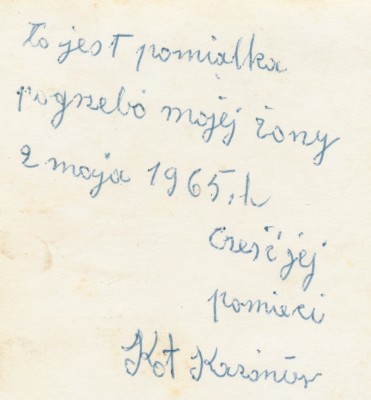 To jest pomiałka
pogrzebó mojej żony
2 maja 1965.r
Cześć jej
pomieci
Kot Kazimir